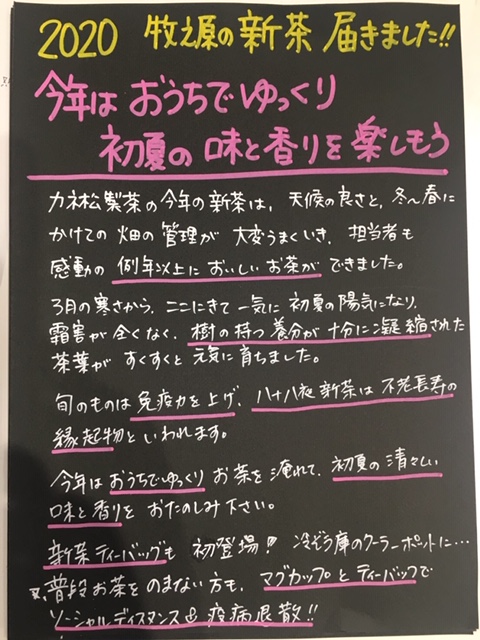 2020 牧之原の新茶 届きました!!
今年は おうちで ゆっくり
初夏の 味と香りを 楽しもう
カネ松製茶の今年の新茶は、天候の良さと、冬〜春に
かけての 畑の管理が 大変うまくいき、担当者も
感動の 例年以上に おいしいお茶が できました。
3月の寒さから、ここにきて 一気に 初夏の陽気になり、
霜害が 全くなく、樹の持つ養分が 十分に凝縮された
茶葉が すくすくと 元気に 育ちました。
旬のものは 免疫力を上げ、八十八夜新茶は 不老長寿の
縁起物 といわれます。
今年は おうちでゆっくり お茶を 淹れて、初夏の 清々しい
味と香りを おたのしみ下さい。
新茶ティーバッグも 初登場! 冷ぞう庫のクーラーポットに…
又、普段お茶を のまない方も、マグカップと ティーバッグで
ソーシャルディスタンス& 疫病退散!!